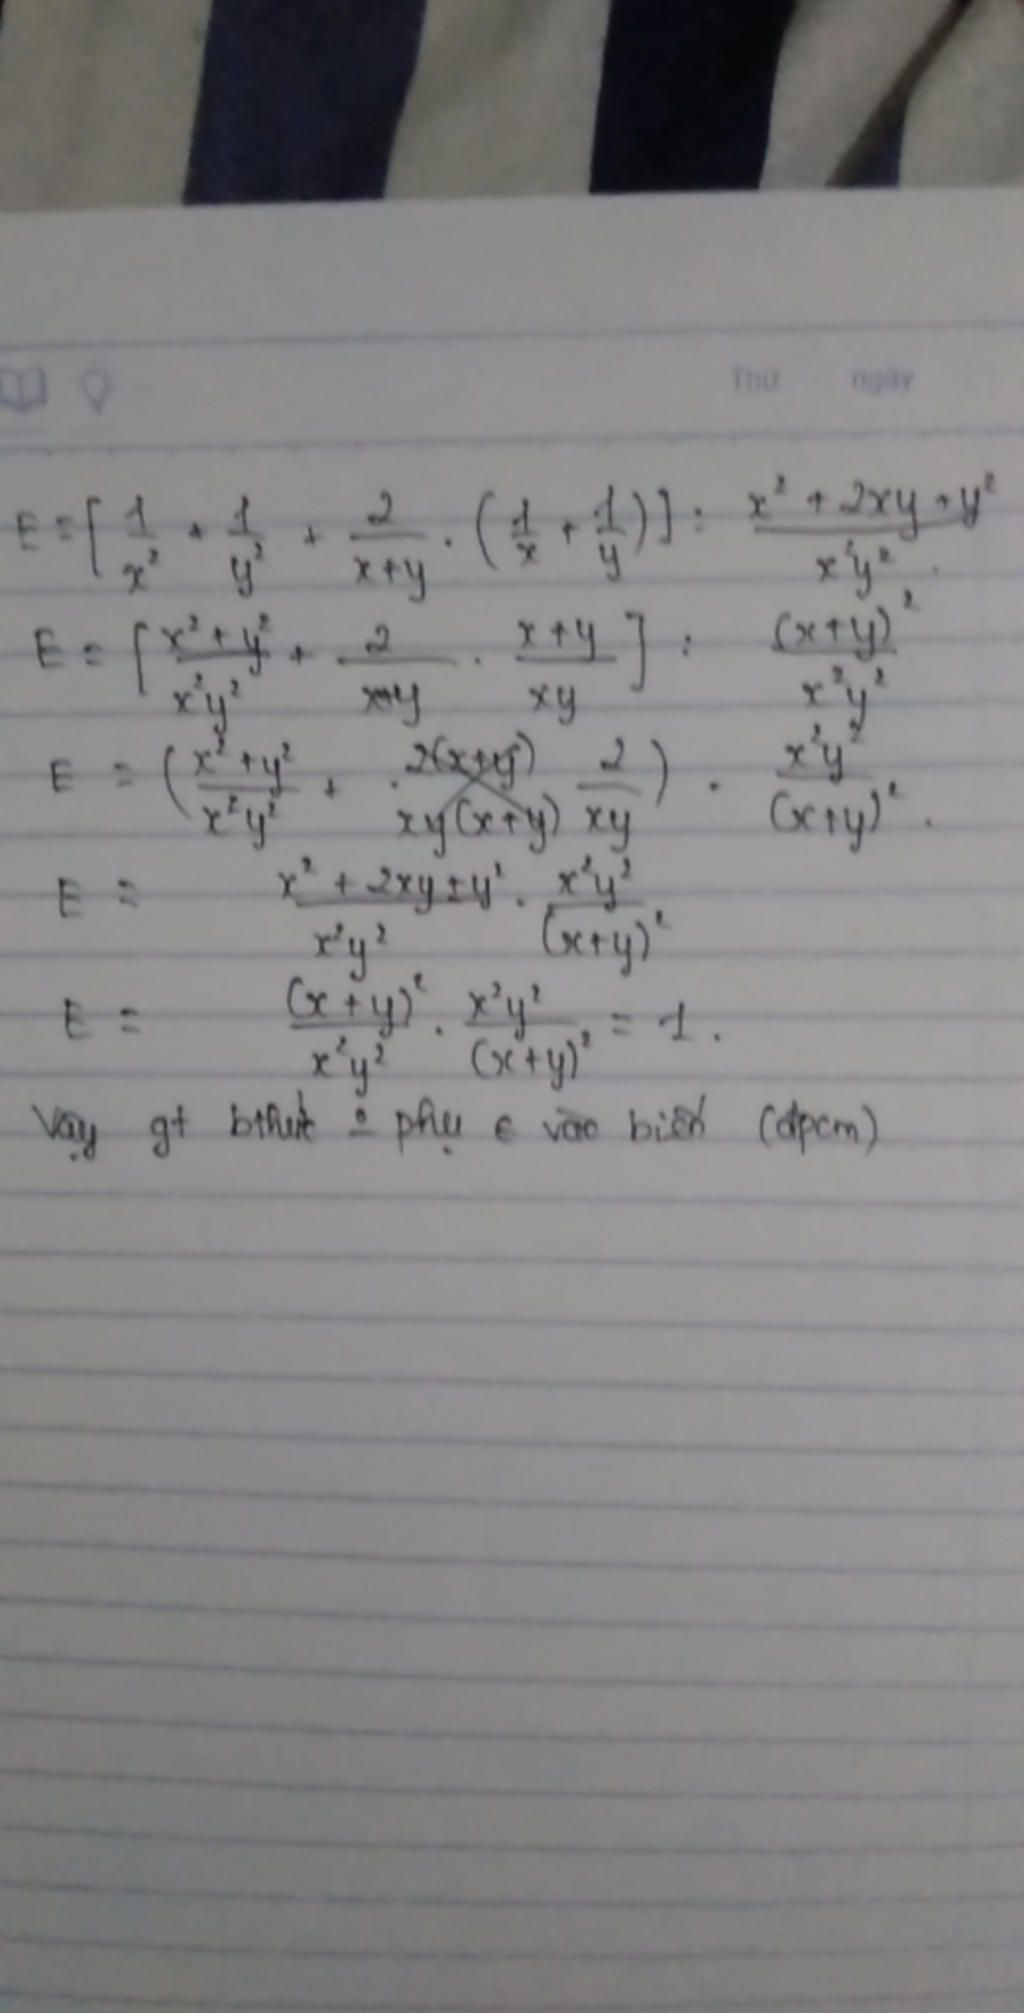 Thứ ngày
E = [1/x² + 1/y² + 2/(x+y) . (1/x + 1/y)] : (x² + 2xy + y²)/(x²y²).
E = [(x² + y²)/(x²y²) + 2/(x+y) . (x+y)/(xy)] : (x+y)²/(x²y²)
E = ((x² + y²)/(x²y²) + 2/(xy)) . x²y²/(x+y)².
E = (x² + 2xy + y²)/(x²y²) . x²y²/(x+y)²
E = (x+y)²/(x²y²) . x²y²/(x+y)² = 1.
Vậy gt bthức phụ ∈ vào biến (đpcm)